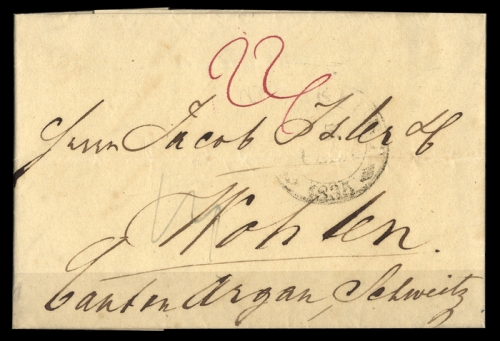 Herrn Jacob Isler & C
1835
Wohlen.
Canton Argau, Schweitz